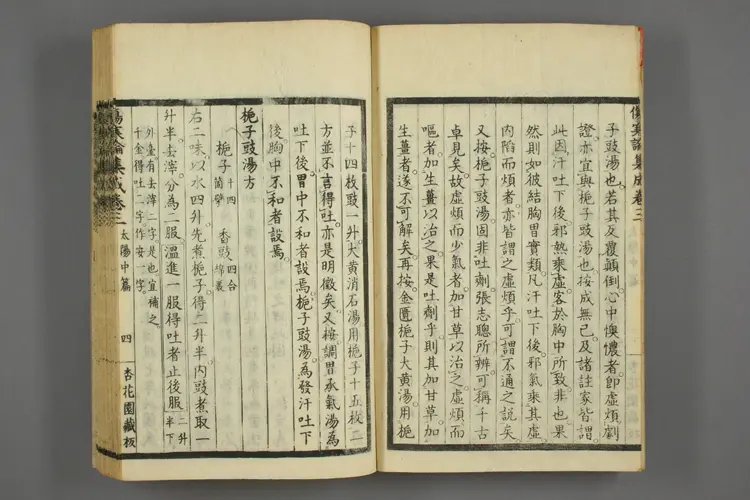 傷寒論集成卷三
子豉湯也若其反覆顛倒心中懊憹者卽虛煩劇
證亦宜與梔子豉湯也按成無已及諸註家皆謂
此因汗吐下後邪熱乘虛客於胸中所致非也果
然則如彼結胸胃實類凡汗吐下後邪氣乘其虛
內陷而煩者亦皆謂之虛煩乎可謂不通之説矣
又按梔子豉湯固非吐劑張志聰所辨可稱千古
卓見矣故虛煩而少氣者加甘草以治之虛煩而
嘔者加生薑以治之果是吐劑乎則其加甘草加
生薑者遂不可解矣再按金匱梔子大黃湯用梔
子十四枚豉一升大黃消石湯用梔子十五枚二
方並不言得吐亦是明徵矣又按調胃承氣湯為
吐下後胃中不和者設焉梔子豉湯為發汗吐下
後胸中不和者設焉
梔子豉湯方
梔子十四箇擘 香豉四合綿裹
右二味以水四升先煮梔子得二升半內豉煮取一
升半去滓分為二服溫進一服得吐者止後服二升半下
外臺有去滓二字是也宜補之
千金得吐二字作安一字
傷寒論集成卷三 太陽中篇 四 杏花園藏板